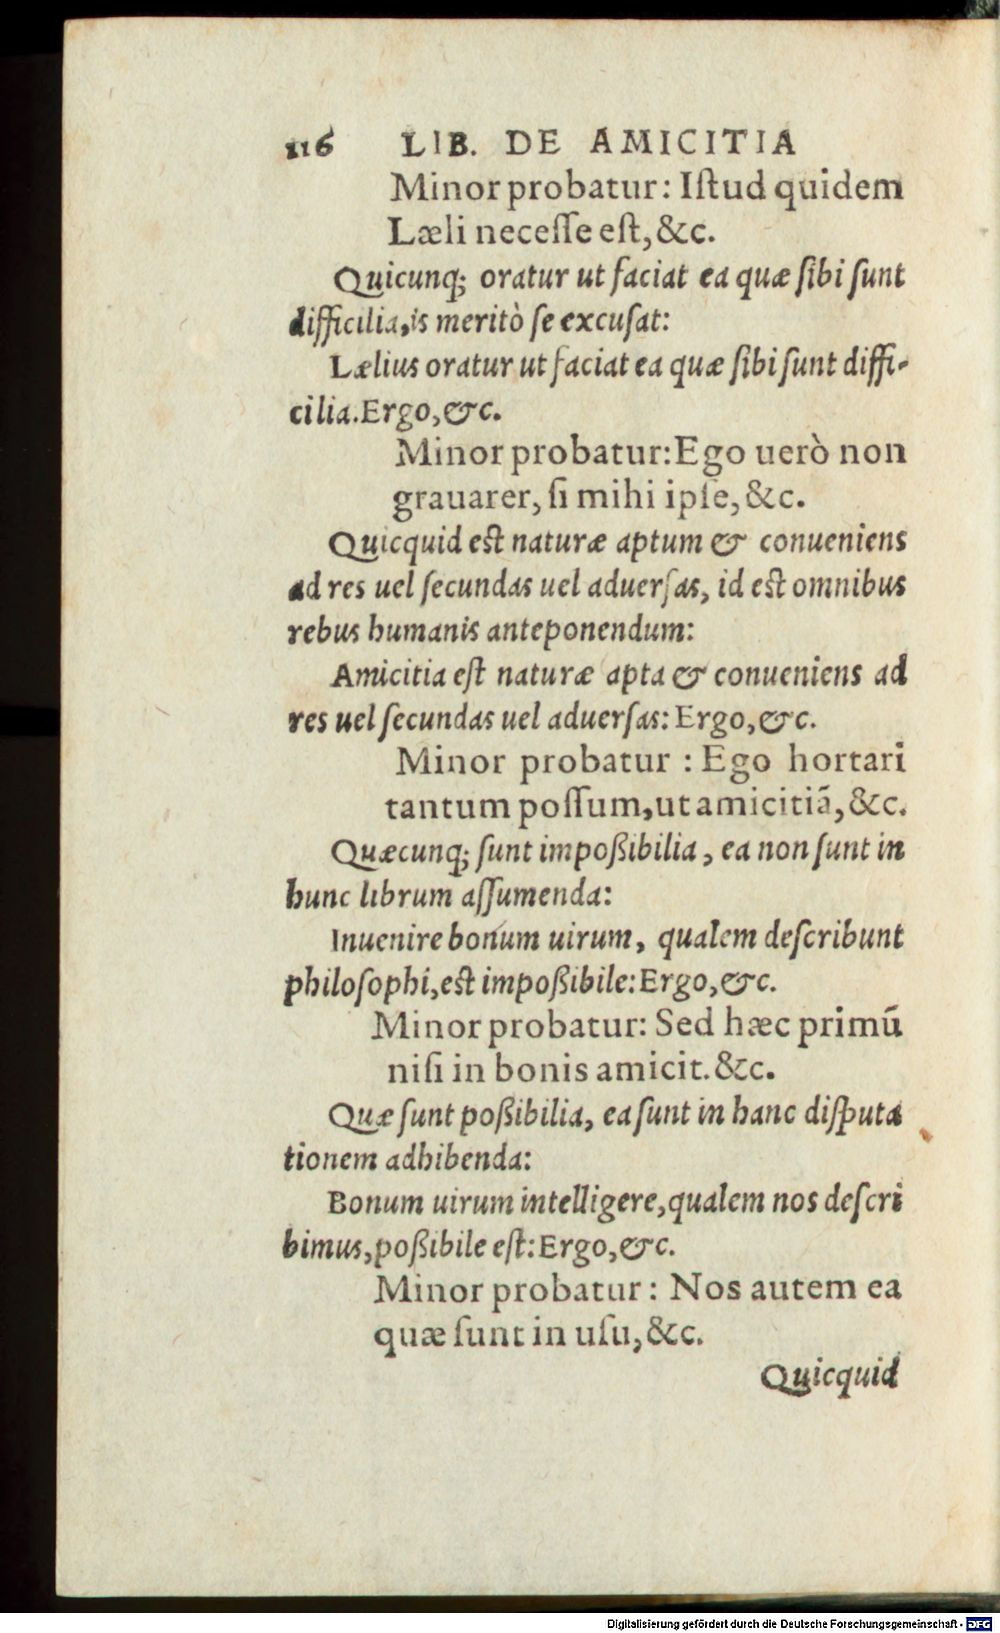 116 LIB. DE AMICITIA
Minor probatur: Iſtud quidem
Læli neceſſe eſt, &c.
Quicunq; oratur ut faciat ea quæ ſibi ſunt
difficilia, is meritò ſe excuſat:
Lælius oratur ut faciat ea quæ ſibi ſunt diffi-
cilia. Ergo, &c.
Minor probatur: Ego uerò non
grauarer, ſi mihi ipſe, &c.
Quicquid eſt naturæ aptum & conueniens
ad res uel ſecundas uel aduerſas, id eſt omnibus
rebus humanis anteponendum:
Amicitia eſt naturæ apta & conueniens ad
res uel ſecundas uel aduerſas: Ergo, &c.
Minor probatur : Ego hortari
tantum poſſum, ut amicitiã, &c.
Quæcunq; ſunt impoßibilia, ea non ſunt in
hunc librum aſſumenda:
Inuenire bonum uirum, qualem deſcribunt
philoſophi, eſt impoßibile: Ergo, &c.
Minor probatur: Sed hæc primũ
niſi in bonis amicit. &c.
Quæ ſunt poßibilia, ea ſunt in hanc diſputa
tionem adhibenda:
Bonum uirum intelligere, qualem nos deſcri
bimus, poßibile eſt: Ergo, &c.
Minor probatur: Nos autem ea
quæ ſunt in uſu, &c.
Quicquid
Digitalisierung gefördert durch die Deutsche Forschungsgemeinschaft - DFG